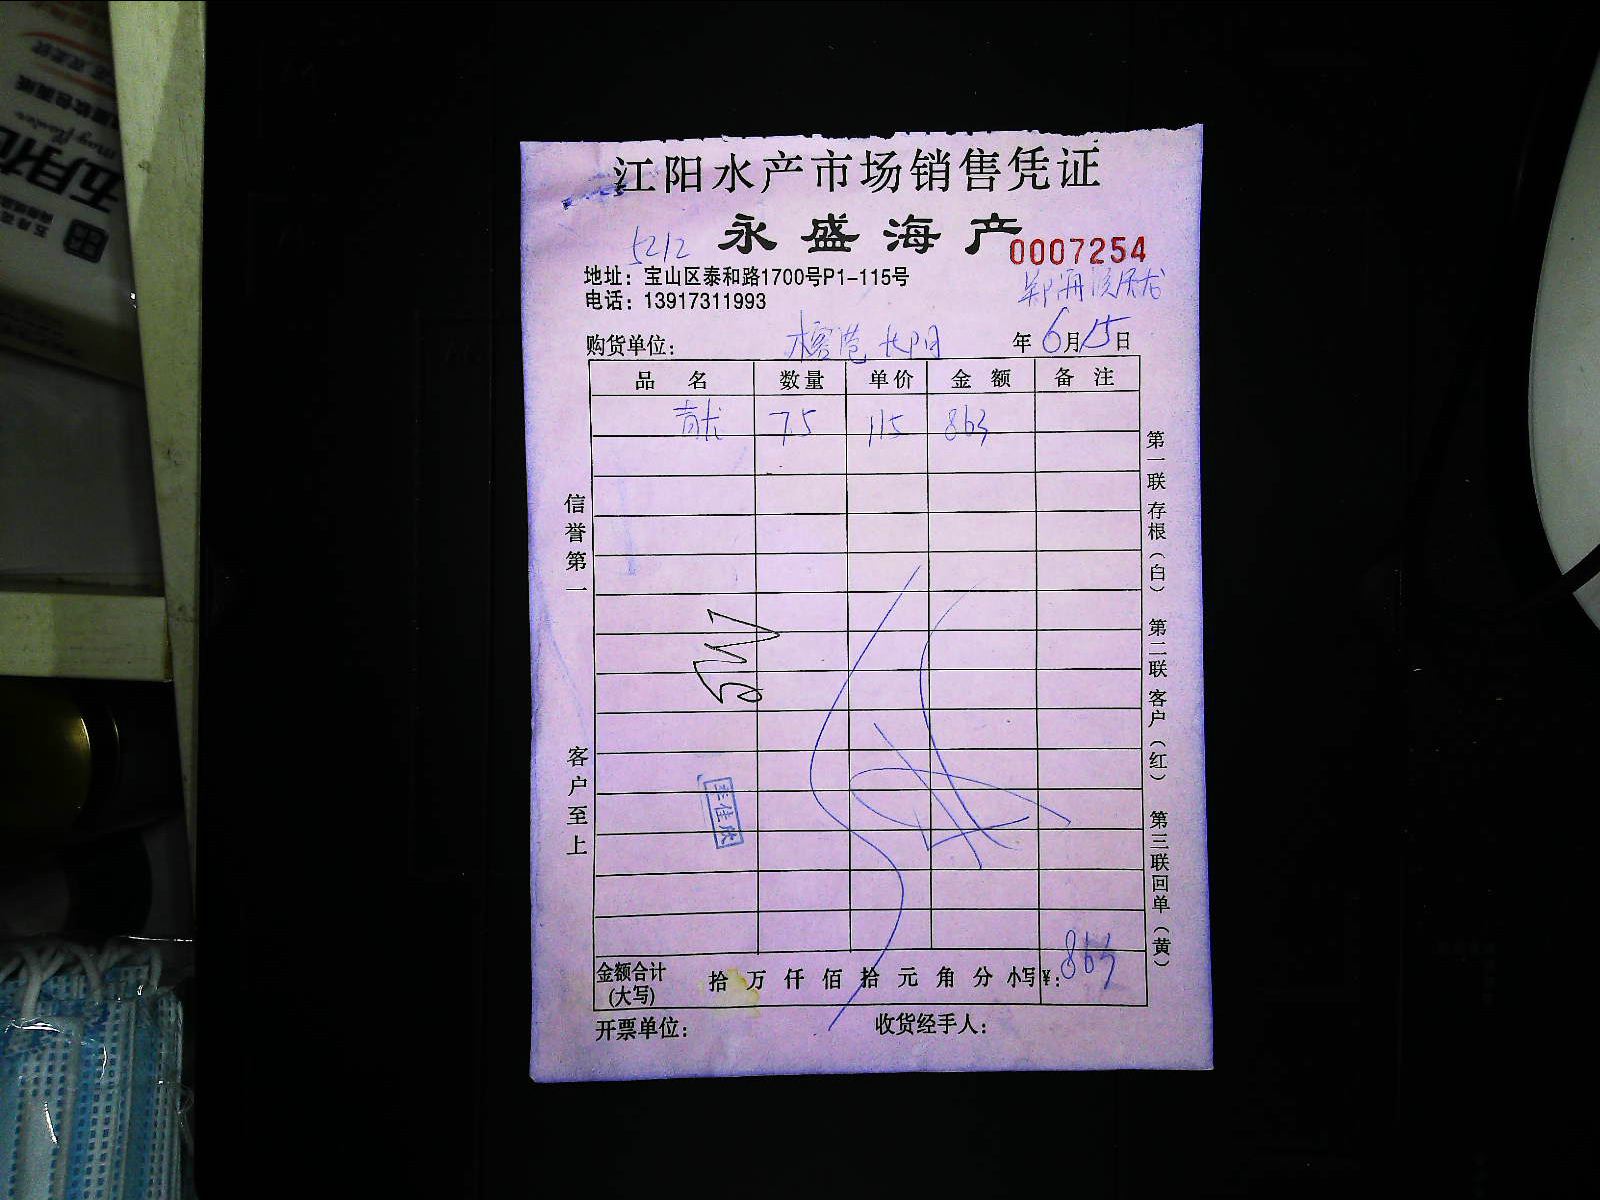 江阳水产市场销售凭证
永盛海产
5212
0007254
地址：宝山区泰和路1700号P1-115号
电话：13917311993
购货单位：
年6月15日
品名 数量 单价 金额 备注
青龙 7.5 115 863
信誉第一
客户至上
第一联存根（白）
第二联客户（红）
第三联回单（黄）
佳欣
金额合计(大写) 拾万仟佰拾元角分 小写¥：863
开票单位：
收货经手人：
五月花